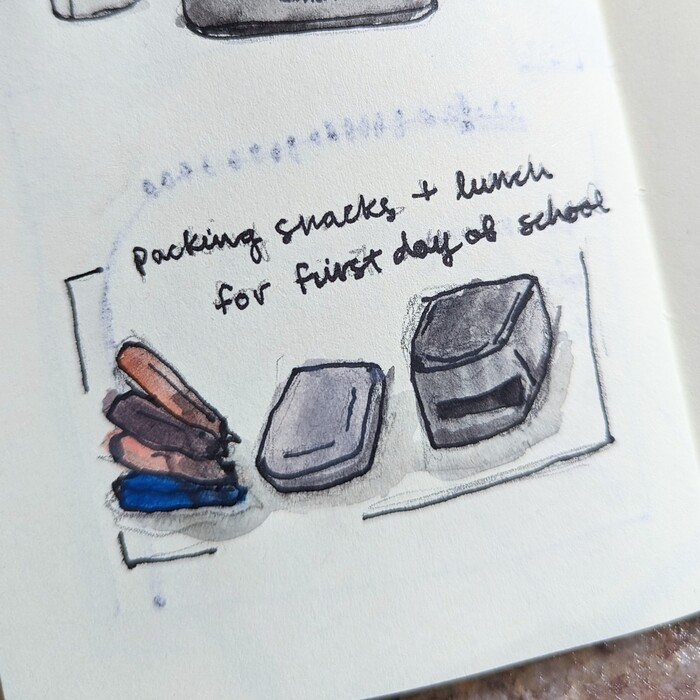 packing snacks + lunch
for first day of school